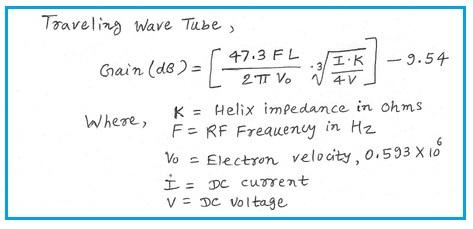 Traveling Wave Tube,
Gain (dB) = [ 47.3 F L / 2 π Vo · ³√ I·K / 4V ] - 9.54
Where, K = Helix impedance in ohms
F = RF Frequency in Hz
Vo = Electron velocity, 0.593 X 10⁶
I = DC current
V = DC Voltage